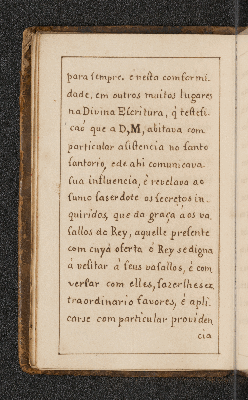 para sempre. e nesta comformi
dade, em outros muitos lugares
na Divina Escritura, q̃ testefi
caõ que a D,M, abitava com
particular asistencia no santo
santorio, e de ahi comunicava
sua influencia, é revelava ao
sumo saserdote os secretos in
quiridos, que da graça aos va
sallos do Rey, aquelle presente
com cuya oferta ó Rey se digna
á vesitar á seus vasallos, é com
versar com elles, fazerlhes ex
traordinario favores, é apli
carse com particular providen
cia